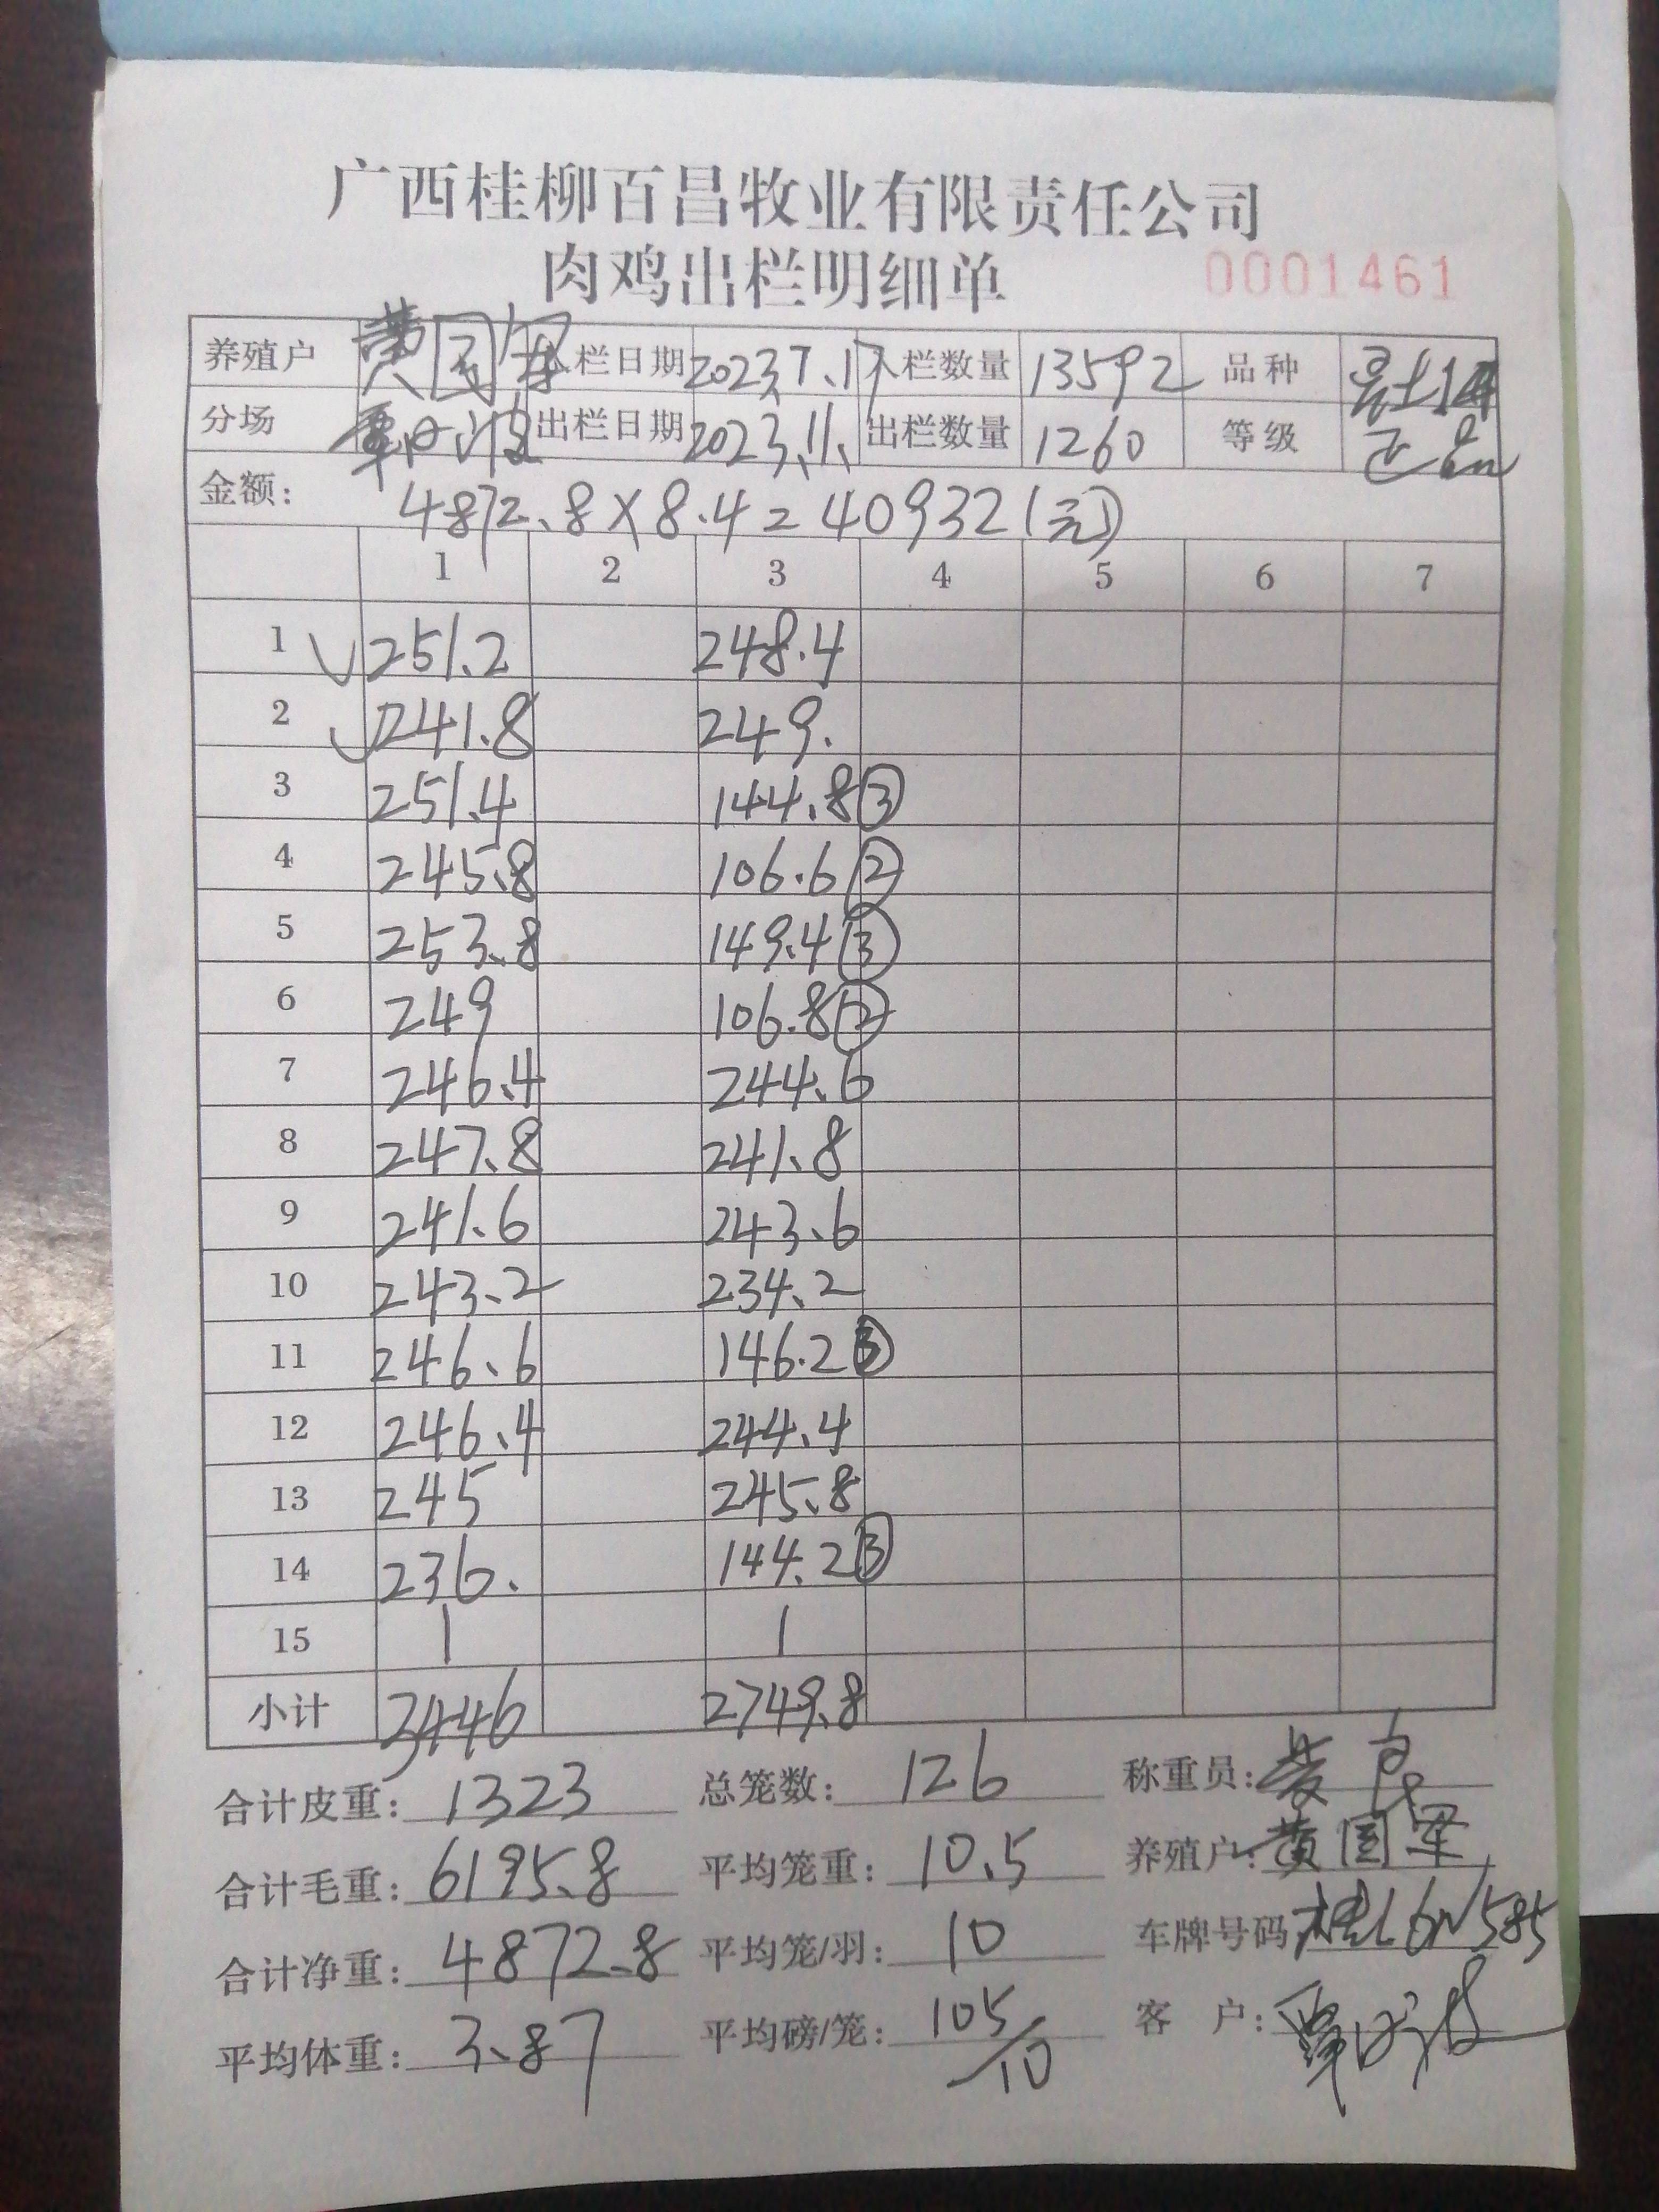 广西桂柳百昌牧业有限责任公司
肉鸡出栏明细单 0001461
养殖户 黄国军 入栏日期 2023.7.17 入栏数量 13592 品种
分场 出栏日期 2023.11. 出栏数量 1260 等级 正品
金额: 4872.8×8.4=40932(元)
1 2 3 4 5 6 7
1 √251.2 248.4
2 √241.8 249.
3 251.4 144.8③
4 245.8 106.6②
5 253.8 149.4③
6 249 106.8②
7 246.4 244.6
8 247.8 241.8
9 241.6 243.6
10 243.2 234.2
11 246.6 146.2③
12 246.4 244.4
13 245 245.8
14 236. 144.2③
15 1 1
小计 3446 2749.8
合计皮重: 1323 总笼数: 126 称重员:
合计毛重: 6195.8 平均笼重: 10.5 养殖户: 黄国军
合计净重: 4872.8 平均笼/羽: 10 车牌号码 桂L6N585
平均体重: 3.87 平均磅/笼: 105/10 客 户: